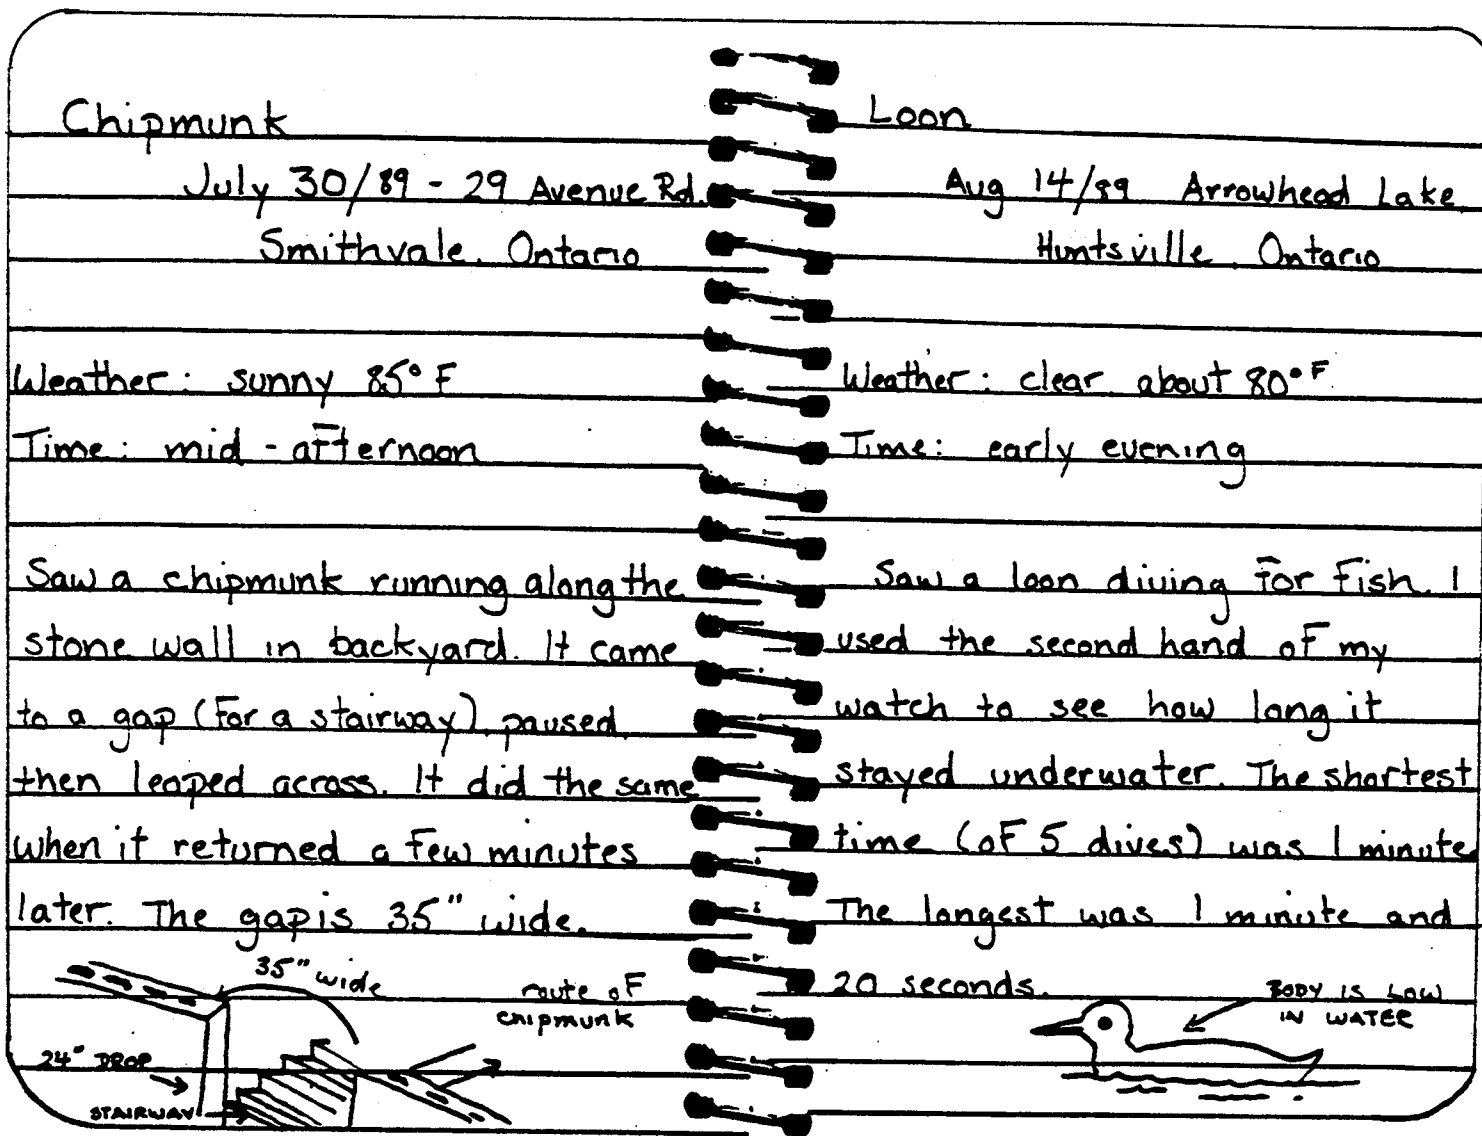 Chipmunk
July 30/89 - 29 Avenue Rd.
Smithvale, Ontario
Weather: sunny 85° F
Time: mid-afternoon
Saw a chipmunk running along the
stone wall in backyard. It came
to a gap (for a stairway), paused,
then leaped across. It did the same
when it returned a few minutes
later. The gap is 35" wide.
35" wide
route of
chipmunk
24" DROP
STAIRWAY
Loon
Aug 14/89 Arrowhead Lake
Huntsville, Ontario
Weather: clear, about 80° F
Time: early evening
Saw a loon diving for fish. I
used the second hand of my
watch to see how long it
stayed underwater. The shortest
time (of 5 dives) was 1 minute.
The longest was 1 minute and
20 seconds.
BODY IS LOW
IN WATER